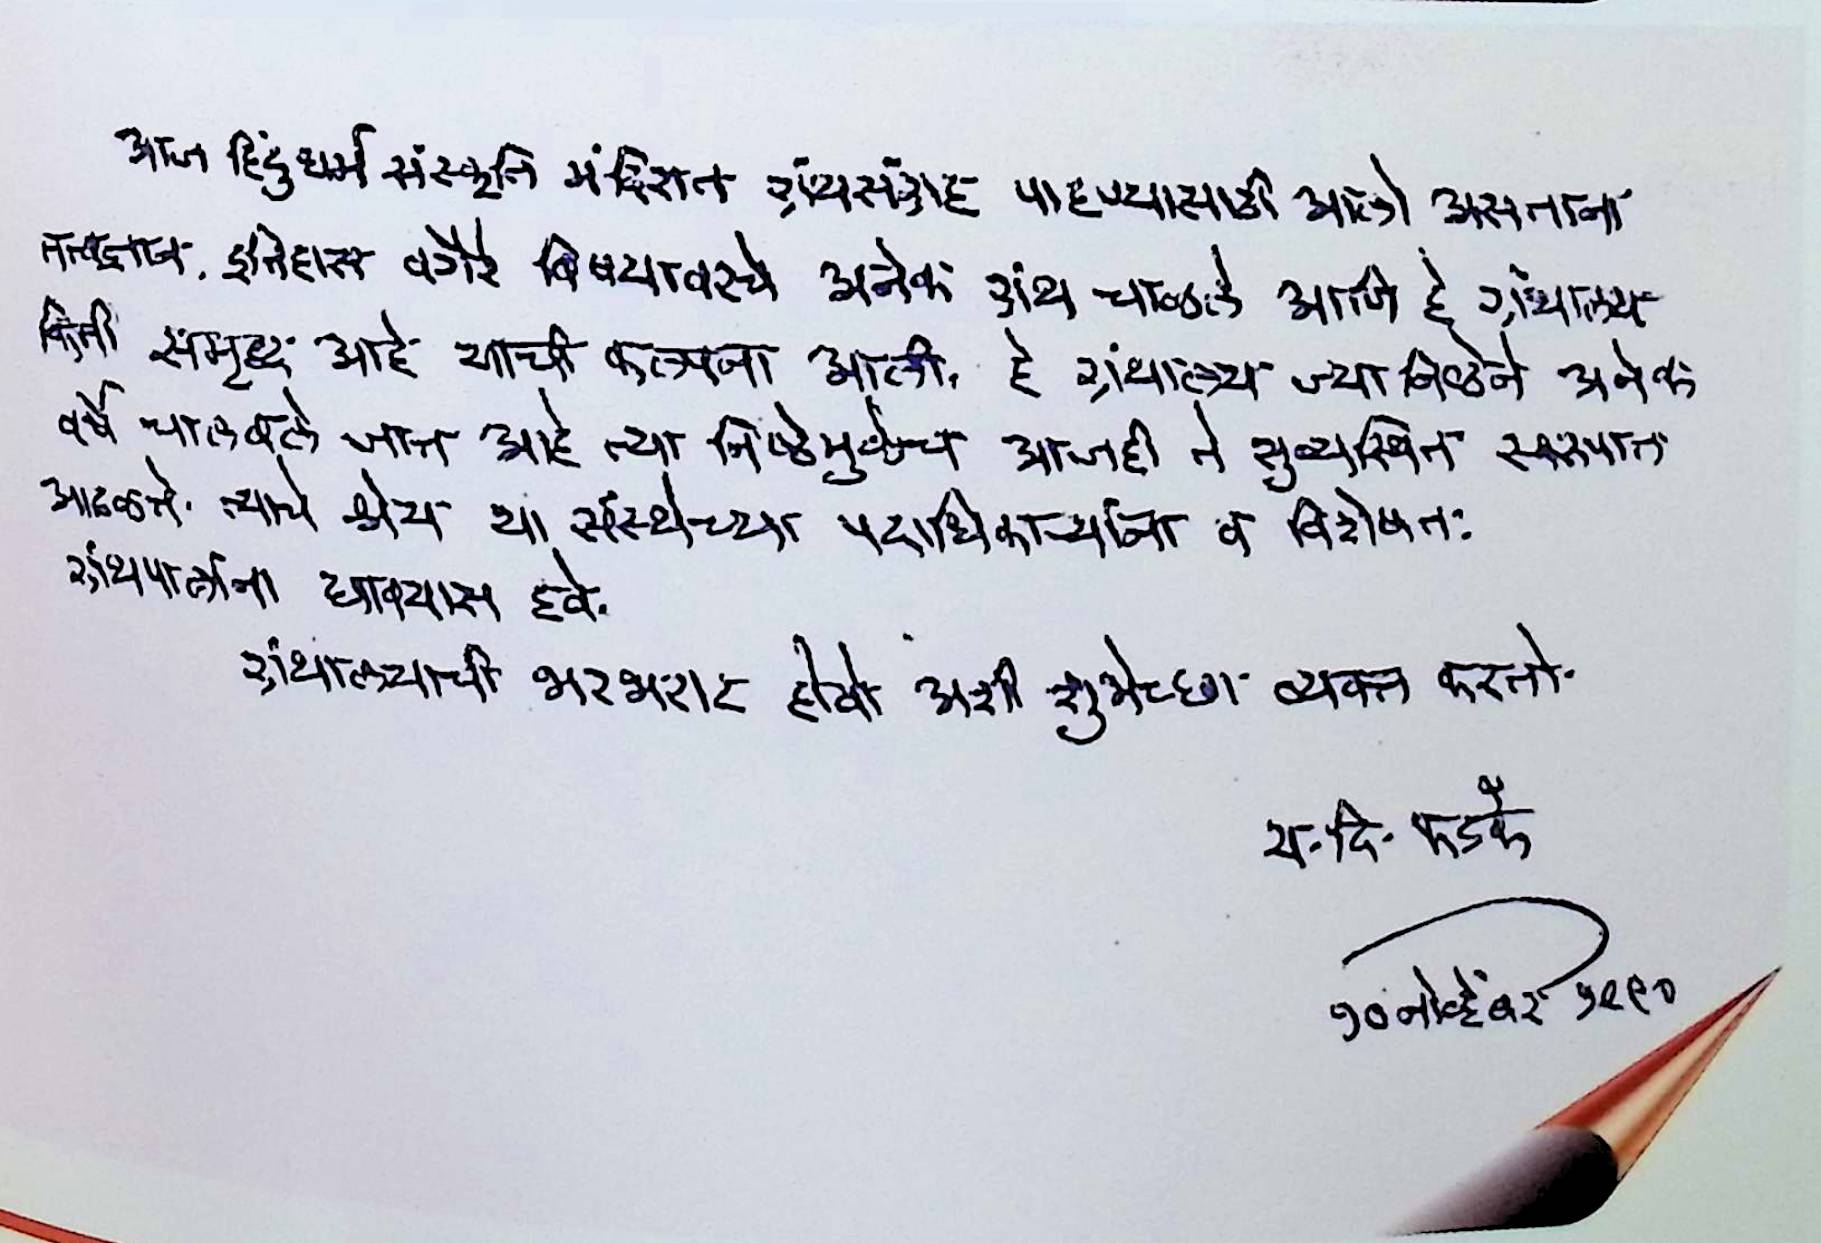 आज हिंदुधर्म संस्कृति मंदिरात ग्रंथसंग्रह पाहण्यासाठी आलो असताना
तत्वज्ञान, इतिहास वगैरे विषयावरचे अनेक ग्रंथ चाळले आणि हे ग्रंथालय
किती समृद्ध आहे याची कल्पना आली. हे ग्रंथालय ज्या निष्ठेने अनेक
वर्षे चालवले जात आहे त्या निष्ठेमुळेच आजही ते सुव्यस्थित स्वरुपात
आढळते. त्याचे श्रेय या संस्थेच्या पदाधिकाऱ्यांना व विशेषतः
ग्रंथपालांना द्यावयास हवे.
ग्रंथालयाची भरभराट होवो अशी शुभेच्छा व्यक्त करतो.
य. दि. फडके
१० नोव्हेंबर १९९०